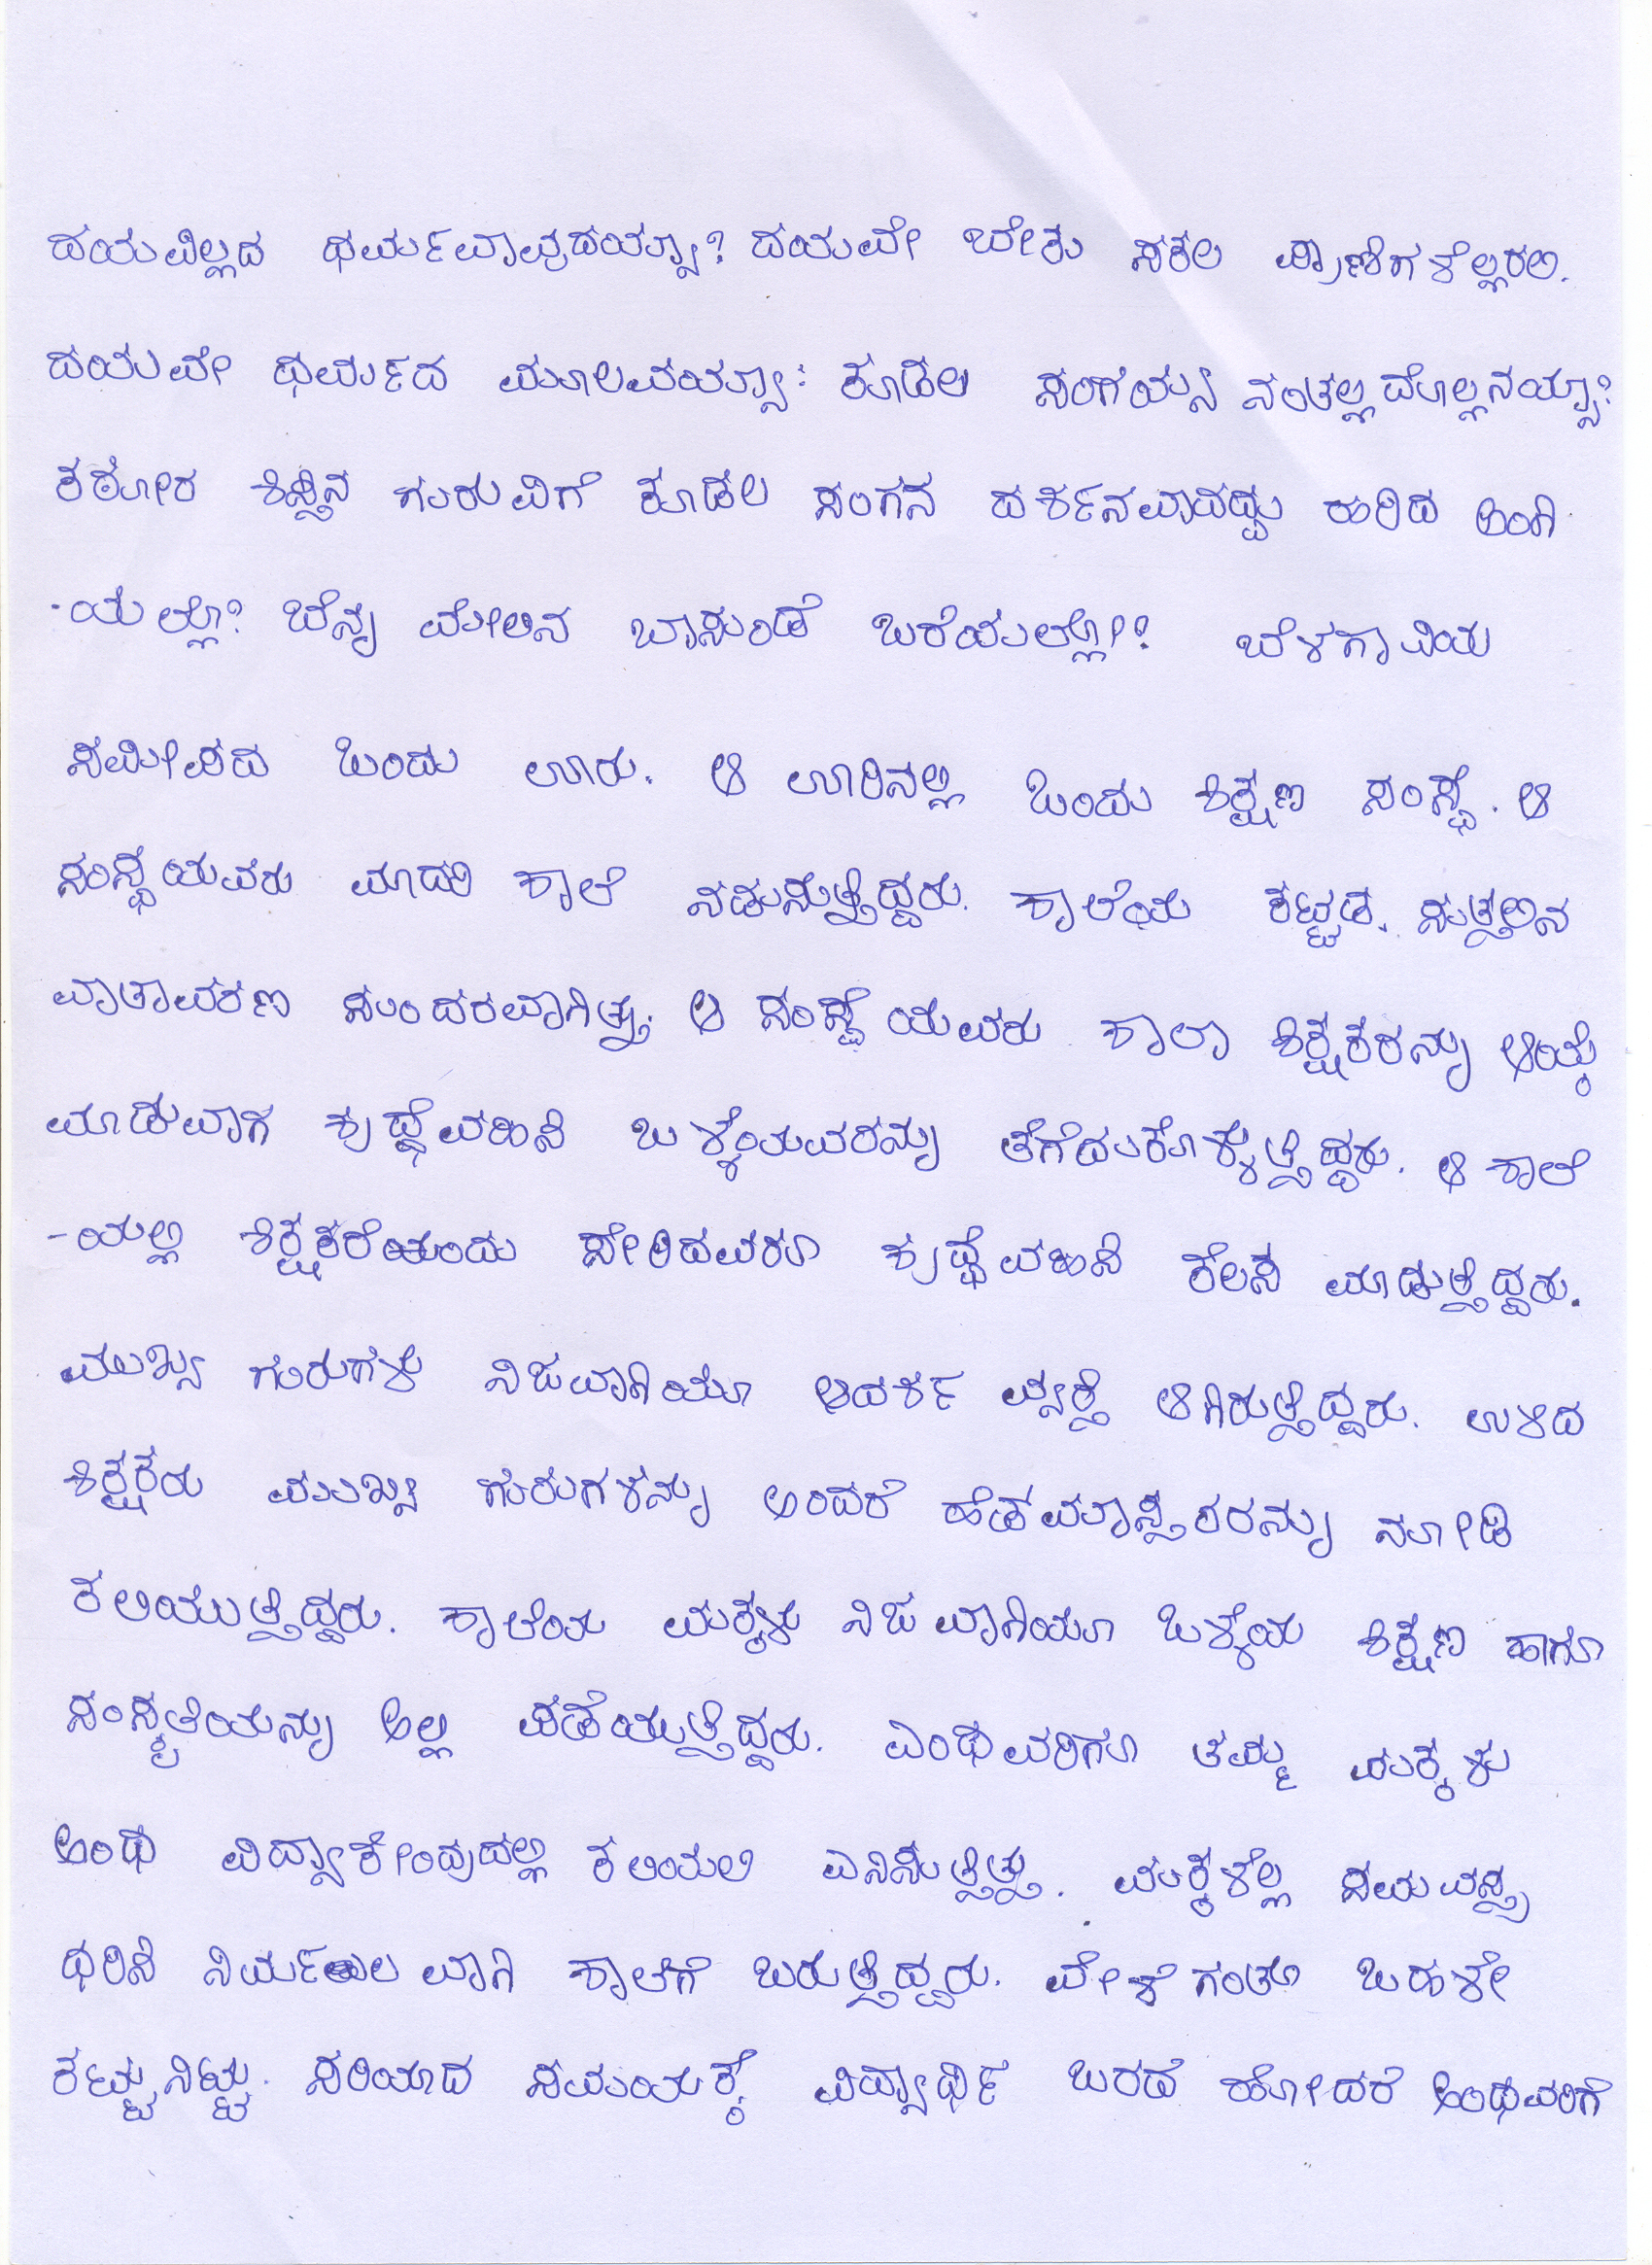 ದಯವಿಲ್ಲದ ಧರ್ಮವಾವುದಯ್ಯಾ? ದಯವೇ ಬೇಕು ಸಕಲ ಪ್ರಾಣಿಗಳೆಲ್ಲರಲಿ.
ದಯವೇ ಧರ್ಮದ ಮೂಲವಯ್ಯಾ: ಕೂಡಲ ಸಂಗಯ್ಯ ನಂತಲ್ಲದೊಲ್ಲನಯ್ಯಾ?
ಕಠೋರ ಶಿಸ್ತಿನ ಗುರುವಿಗೆ ಕೂಡಲ ಸಂಗನ ದರ್ಶನವಾದದ್ದು ಹರಿದ ಅಂಗಿ
-ಯಲ್ಲೊ? ಬೆನ್ನ ಮೇಲಿನ ಬಾಸುಂಡೆ ಬರೆಯಲ್ಲೋ? ಬೆಳಗಾವಿಯ
ಸಮೀಪದ ಒಂದು ಊರು. ಆ ಊರಿನಲ್ಲಿ ಒಂದು ಶಿಕ್ಷಣ ಸಂಸ್ಥೆ. ಆ
ಸಂಸ್ಥೆಯವರು ಮಾದರಿ ಶಾಲೆ ನಡುಸುತ್ತಿದ್ದರು. ಶಾಲೆಯ ಕಟ್ಟಡ, ಸುತ್ತಲಿನ
ವಾತಾವರಣ ಸುಂದರವಾಗಿತ್ತು. ಆ ಸಂಸ್ಥೆಯವರು ಶಾಲಾ ಶಿಕ್ಷಕರನ್ನು ಆಯ್ಕೆ
ಮಾಡುವಾಗ ಶ್ರದ್ಧೆವಹಿಸಿ ಒಳ್ಳೆಯವರನ್ನು ತೆಗೆದುಕೊಳ್ಳುತ್ತಿದ್ದರು. ಆ ಶಾಲೆ
-ಯಲ್ಲಿ ಶಿಕ್ಷಕರೆಯಂದು ಸೇರಿದವರೂ ಶ್ರದ್ಧೆವಹಿಸಿ ಕೆಲಸ ಮಾಡುತ್ತಿದ್ದರು.
ಮುಖ್ಯ ಗುರುಗಳು ನಿಜವಾಗಿಯೂ ಆದರ್ಶ ವ್ಯಕ್ತಿ ಆಗಿರುತ್ತಿದ್ದರು. ಉಳಿದ
ಶಿಕ್ಷಕರು ಮುಖ್ಯ ಗುರುಗಳನ್ನು ಅಂದರೆ ಹೆಡ್‌ಮಾಸ್ತಿರರನ್ನು ನೋಡಿ
ಕಲಿಯುತ್ತಿದ್ದರು. ಶಾಲೆಯ ಮಕ್ಕಳು ನಿಜವಾಗಿಯೂ ಒಳ್ಳೆಯ ಶಿಕ್ಷಣ ಹಾಗೂ
ಸಂಸ್ಕೃತಿಯನ್ನು ಅಲ್ಲಿ ಪಡೆಯುತ್ತಿದ್ದರು. ಎಂಥವರಿಗೂ ತಮ್ಮ ಮಕ್ಕಳು
ಅಂಥ ವಿದ್ಯಾಕೇಂದ್ರದಲ್ಲಿ ಕಲಿಯಲಿ ಎನಿಸುತ್ತಿತ್ತು. ಮಕ್ಕಳೆಲ್ಲ ಸಮವಸ್ತ್ರ
ಧರಿಸಿ ನಿರ್ಮಲವಾಗಿ ಶಾಲೆಗೆ ಬರುತ್ತಿದ್ದರು. ವೇಳೆಗಂತೂ ಬಹಳೇ
ಕಟ್ಟುನಿಟ್ಟು. ಸರಿಯಾದ ಸಮಯಕ್ಕೆ ವಿದ್ಯಾರ್ಥಿ ಬರದೆ ಹೋದರೆ ಅಂಥವರಿಗೆ